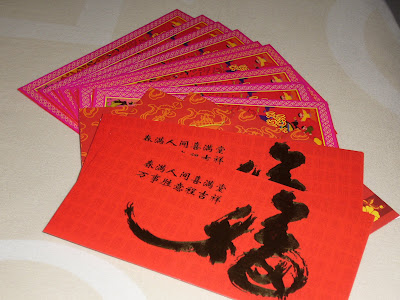 春满人间喜满堂
吉祥
春满人间喜满堂
万事胜意程吉祥
福